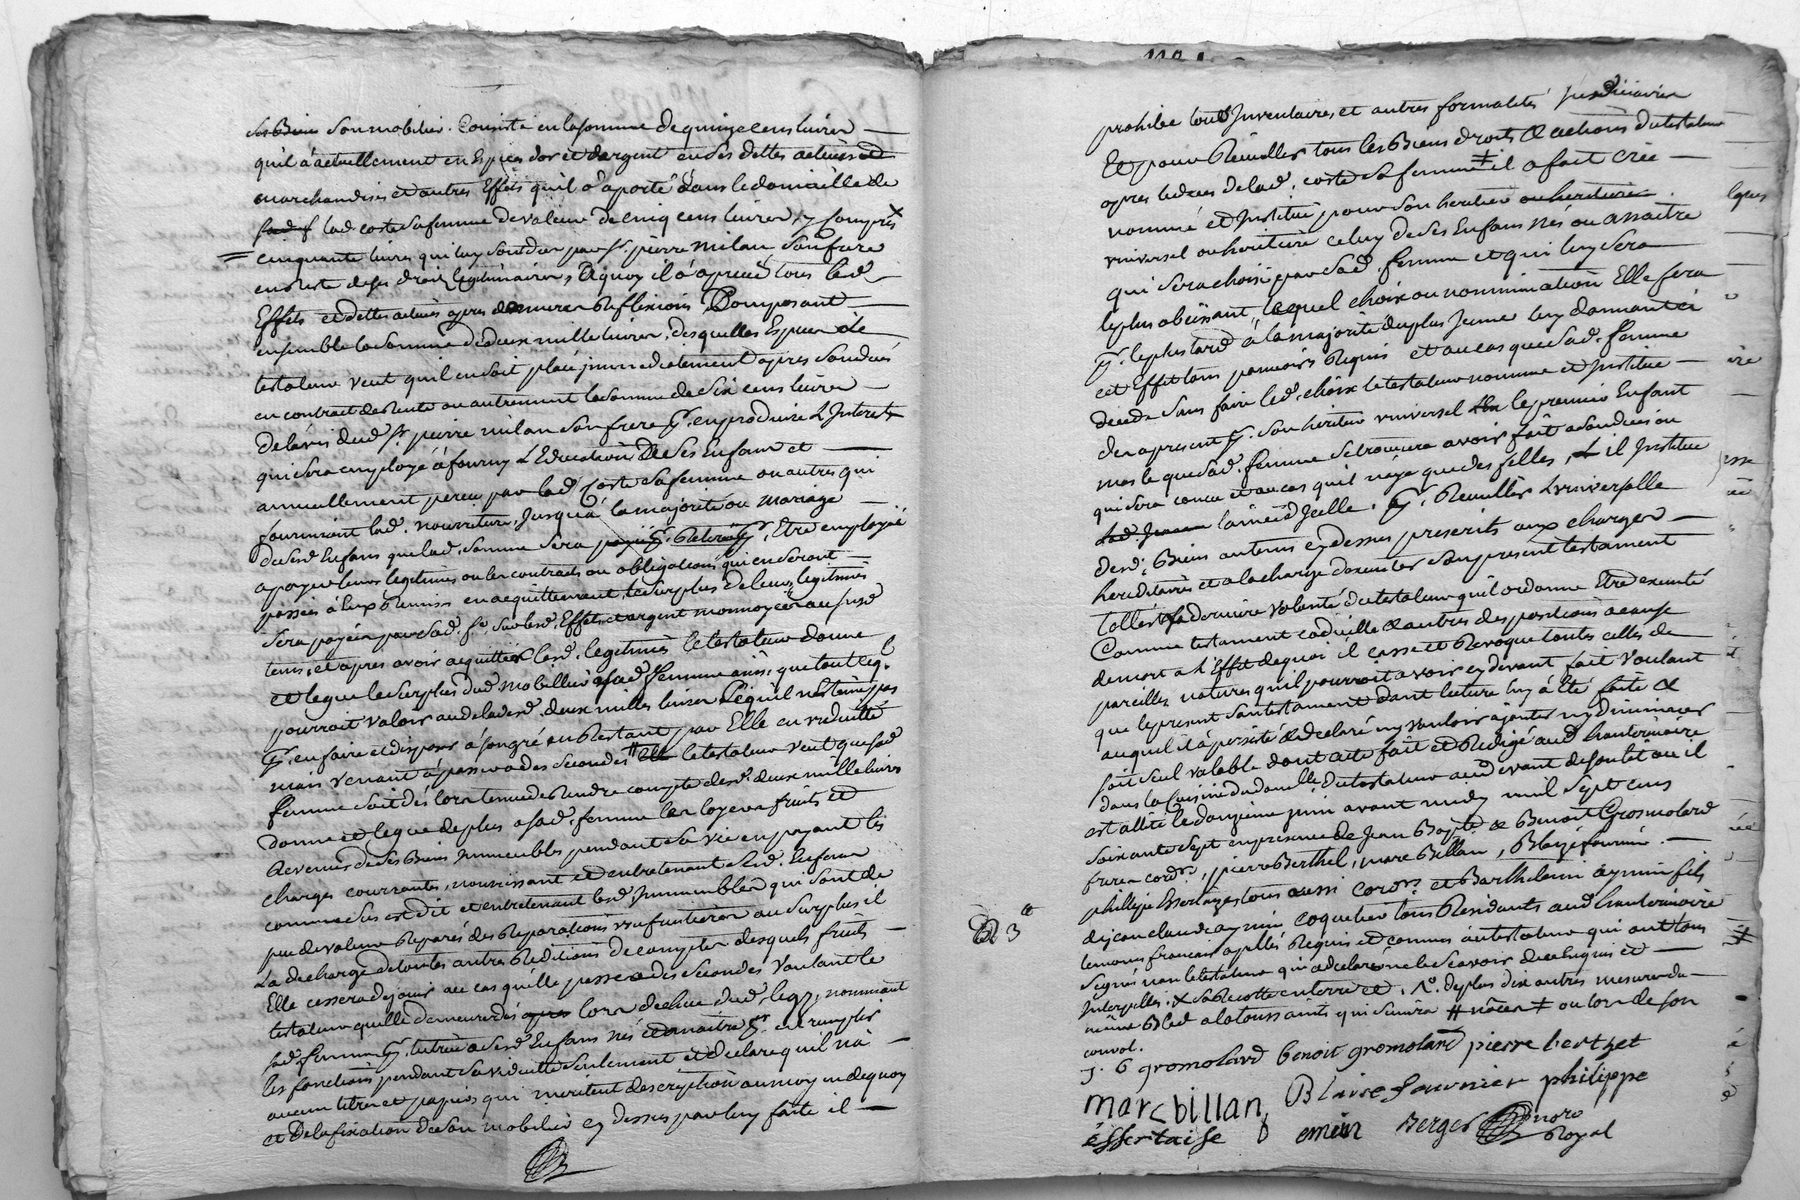 ses Biens Son mobilier Consiste en la somme de quinze cens livres
qu'il a actuellement en Espèces d'or et d'argent en ses dettes actives et
marchandises et autres Effets qu'il a aporté dans le domaicille de
lad coste sa femme de valeur de cinq cens livres y compris
cinquante livres qui luy sont dus par sr. pierre milan son frere
en reste de ses droits legitimaires, A quoy il a apretié tous lesd
Effets et dettes actives apres de mures Reflexions Composant
ensemble la somme de deux mille livres, desquelles Espices Le
testateur veut qu'il en soit placé immediatement apres son deces
en contract de Rente ou autrement la somme de six cens livres
de l'avis dud sr. pierre milan son frere pr. en produire L'Interest
qui sera employé à fournir L'Education De ses Enfans et
annuellement perçu par lad Coste sa femme ou autres qui
fourniront lad. nourriture, Jusqu'à la majorité ou mariage
de sesd Enfans que lad. somme sera Retirée pr. Etre employée
a payer leurs legitimes ou les contracts ou obligations qui en seront
passées à Eux Remises en acquittement, le surplus de leurs legitimes
sera payée par sad. fe. sur lesd. Effets et argent monnoyée au susd
tems, et apres avoir acquitté lesd. legitimes le testateur donne
et legue le surplus dud mobillier a sad femme ainsi que tout ce q.l
pourroit valoir au dela desd. deux milles livres
pr. en faire et disposer à son gré en Restant par Elle en viduitté
mais venant à passer a des secondes le testateur veut que sad
femme soit dès lors tenue de Rendre compte desd. deux mille livres
donne et legue de plus a sad. femme les loyers fruits et
Revenus de ses Biens Immeubles pendant sa vie en payant les
charges courrantes, nourrissant et entretenant sesd. Enfans
comme sus est dit et entretenant lesd Immeubles qui sont de
peu de valeur Reparés des Reparations usufruitières au surplus il
La decharge de toutes autres Redditions de compter desquels fruits
Elle cessera de jouir au cas qu'elle passe a des secondes Voulant le
testateur quelle demeure dès lors dechue dud. legs, nommant
sad. femme pr. tutrice a sesd Enfans nés et a naitre pr. en remplir
les fonctions pendant sa viduitté seulement et declare qu'il n'a
aucun titres et papiers qui meritent description au moyen de quoy
et De la fixation de son mobilier cy dessus par luy faite il
prohibe tous Inventaires et autres formalités Judiciaires
Et pour Recueillir tous les Biens droits & actions du testateur
apres le deces de lad. coste sa femme ≠ il a fait cree
nommé et Institué pour son heritier ou heritiere
universel ou heritiere celuy de ses Enfans nés ou a naitre
qui sera choisi par sad. femme et qui luy sera
le plus obeissant, lequel choix ou nommination Elle fera
pr. le plus tard à la majorité du plus Jeune luy donnant à
cet Effet tous pouvoirs Requis et au cas que sad. femme
decede sans faire led. choix le testateur nomme et Institue
des a present pr. son heritier universel le premier Enfant
male que sad. femme se trouvera avoir fait a son deces ou
qui sera concu et au cas qu'il n'aye que des filles, il Institue
l'ainée d'Icelle, pr. Recueillir L'universelle
desd. Biens au tems cy dessus prescrits aux charges
hereditaires et a la charge d'executer son present testament
Telle est sa derniere volonté du testateur qu'il ordonne Etre executé
Comme testament codicille & autres dispositions a cause
de mort a l'Effet de quoi il casse et Revoque toutes celles de
pareilles natures qu'il pourroit avoir cy devant fait Voulant
que le present son testament dont lecture luy a été faite &
auquel il a persisté & declaré n'y vouloir ajouter ny diminuer
soit seul valable dont acte fait et Redigé aud hauterivoire
dans la Cuisine du domicille du testateur au devant de son lit ou il
est allité le douzieme juin avant midy mil sept cens
soixante sept en presence de Jean Bapte & Benoit Gromolard
freres cordrs, pierre Berthet, marc Billan, Blaize fournier
philippe Essertaizes tous aussi cordrs et Barthelemi aymin fils
dejean claude aymin coquetier tous Residants aud hauterivoire
temoins francais apellés Requis et connus du testateur qui ont tous
signés non le testateur qui a declaré ne le scavoir de ce Enquis et
Interpellés. X sa Recolte en terre et. No. de plus dix autres mesures du
même Bled a la toussaints qui suivra # nôces ≠ ou lors de son
convol.
J. B gromolard benoit gromolard pierre berthet
marcbillan Blaise fournier philippe
essertaise emin Berger nore
Royal